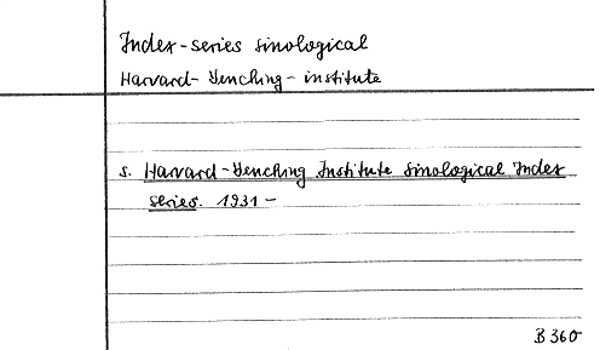 Index-series sinological
Harvard-Yenching-institute
s. Harvard-Yenching Institute Sinological Index
series. 1931-
B 360